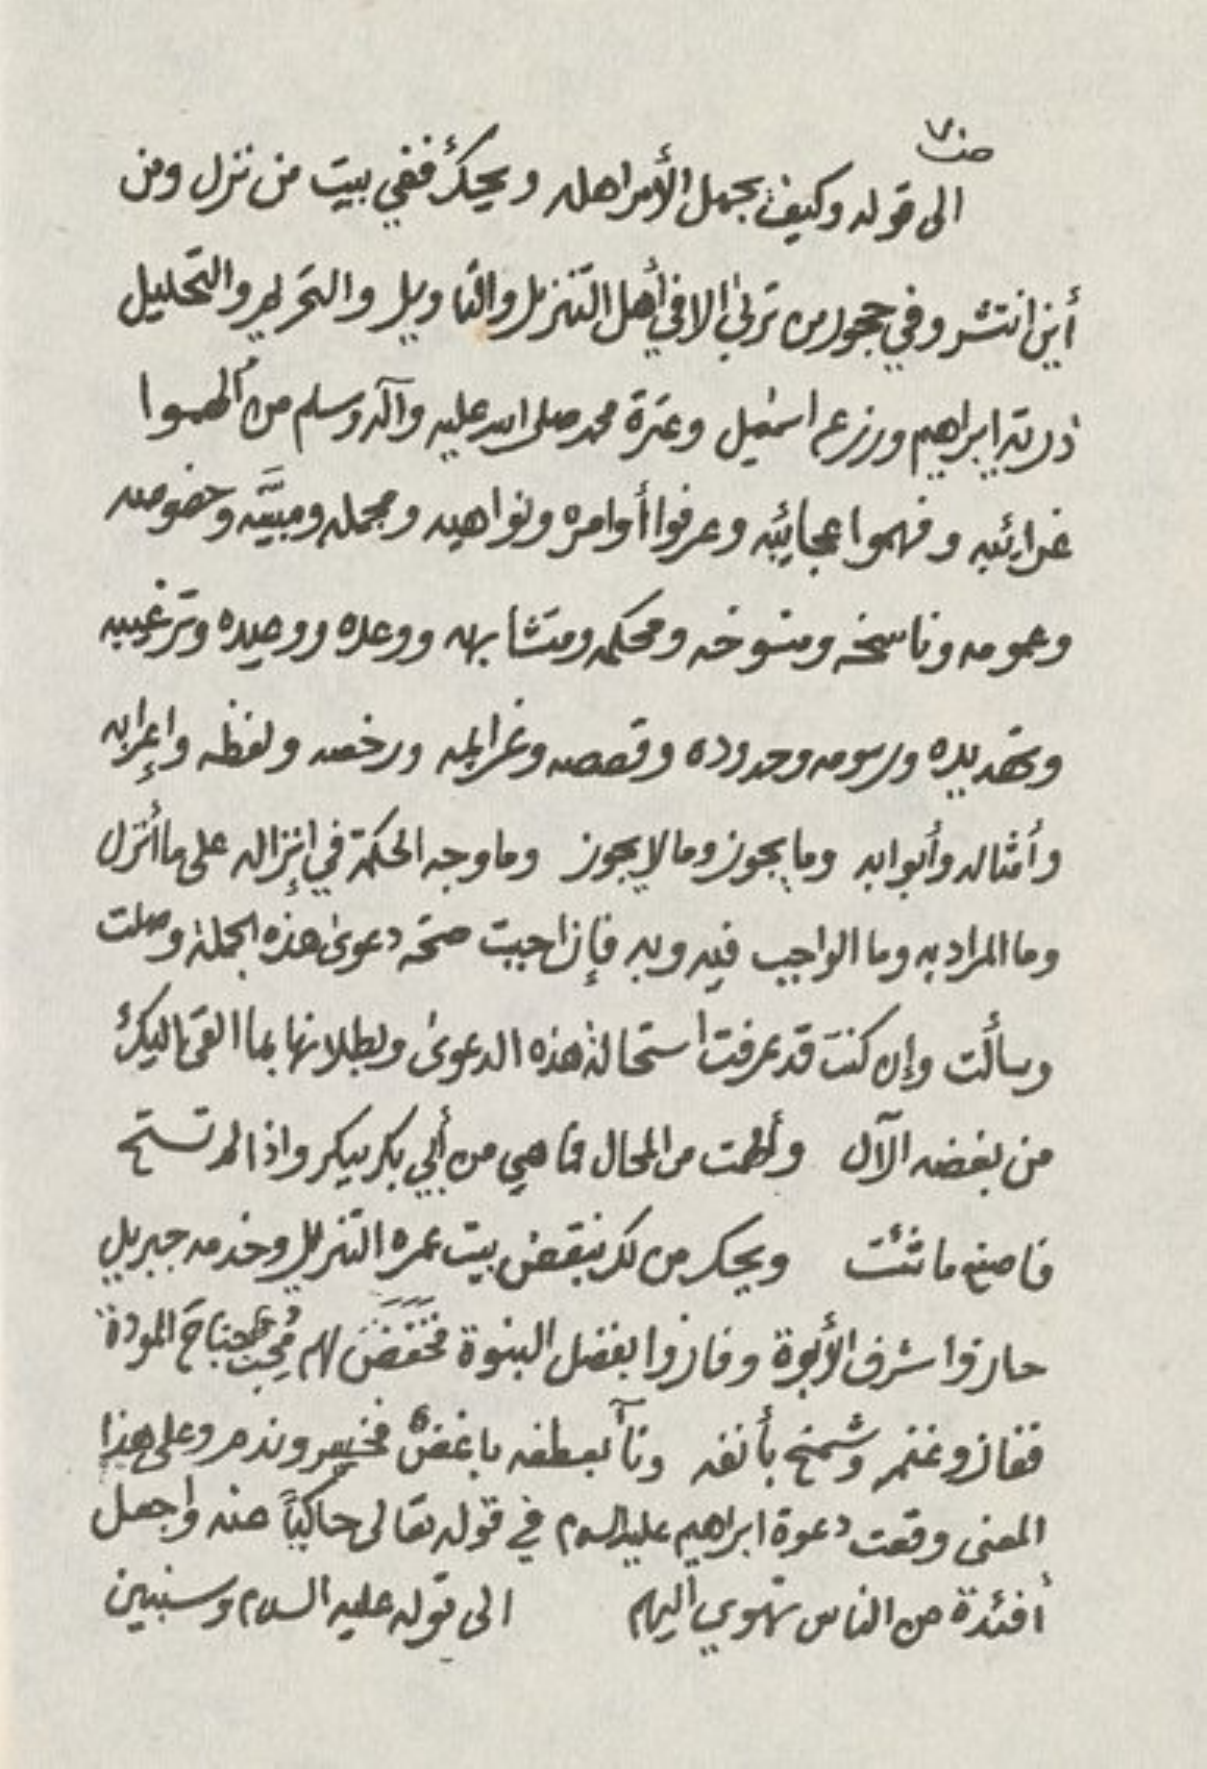 الى قوله وكيف يجهل الأمر اهله ويحك ففي بيت من نزل ومن
أين انتشر وفي حجور من تربى الا في أهل التنزيل والتاويل والتحريم والتحليل
ذرية ابراهيم وزرع اسمعيل وعترة محمد صلى الله عليه وآله وسلم من ألهموا
غرائبه وفهموا عجائبه وعرفوا أوامره ونواهيه ومجمله ومبيَّنه وخصوصه
وعمومه وناسخه ومنسوخه ومحكمه ومتشابهه ووعده ووعيده وترغيبه
وتهديده ورسومه وحدوده وقصصه وعزائمه ورخصه ولفظه وإعرابه
وأمثاله وأبوابه وما يجوز وما لا يجوز وما وجه الحكمة في إنزاله على ما أنزل
وما المراد به وما الواجب فيه وبه فإن احببت صحة دعوى هذه الجملة وصلت
وسألت وإن كنت قد عرفت استحالة هذه الدعوى وبطلانها بما القى اليك
من بغضه الآل من المحال فما هي من أبي بكر ببكر واذا لم تستح
فاصنع ما شئت ويحك من لك بنقض بيت عمره التنزيل وخدمه جبريل
حازوا شرف الأبوة وفازوا بفضل البنوة فخفض لهم مُحِب جناحَ المودة
ففاز وغنم وشمخ بأنفه ونآ بعطفه باغض فخسر وندم وعلى هذا
المعنى وقعت دعوة ابراهيم عليه السلام في قوله تعالى حاكياً عنه واجعل
أفئدة من الناس تهوي اليهم الى قوله عليه السلام وسنبين